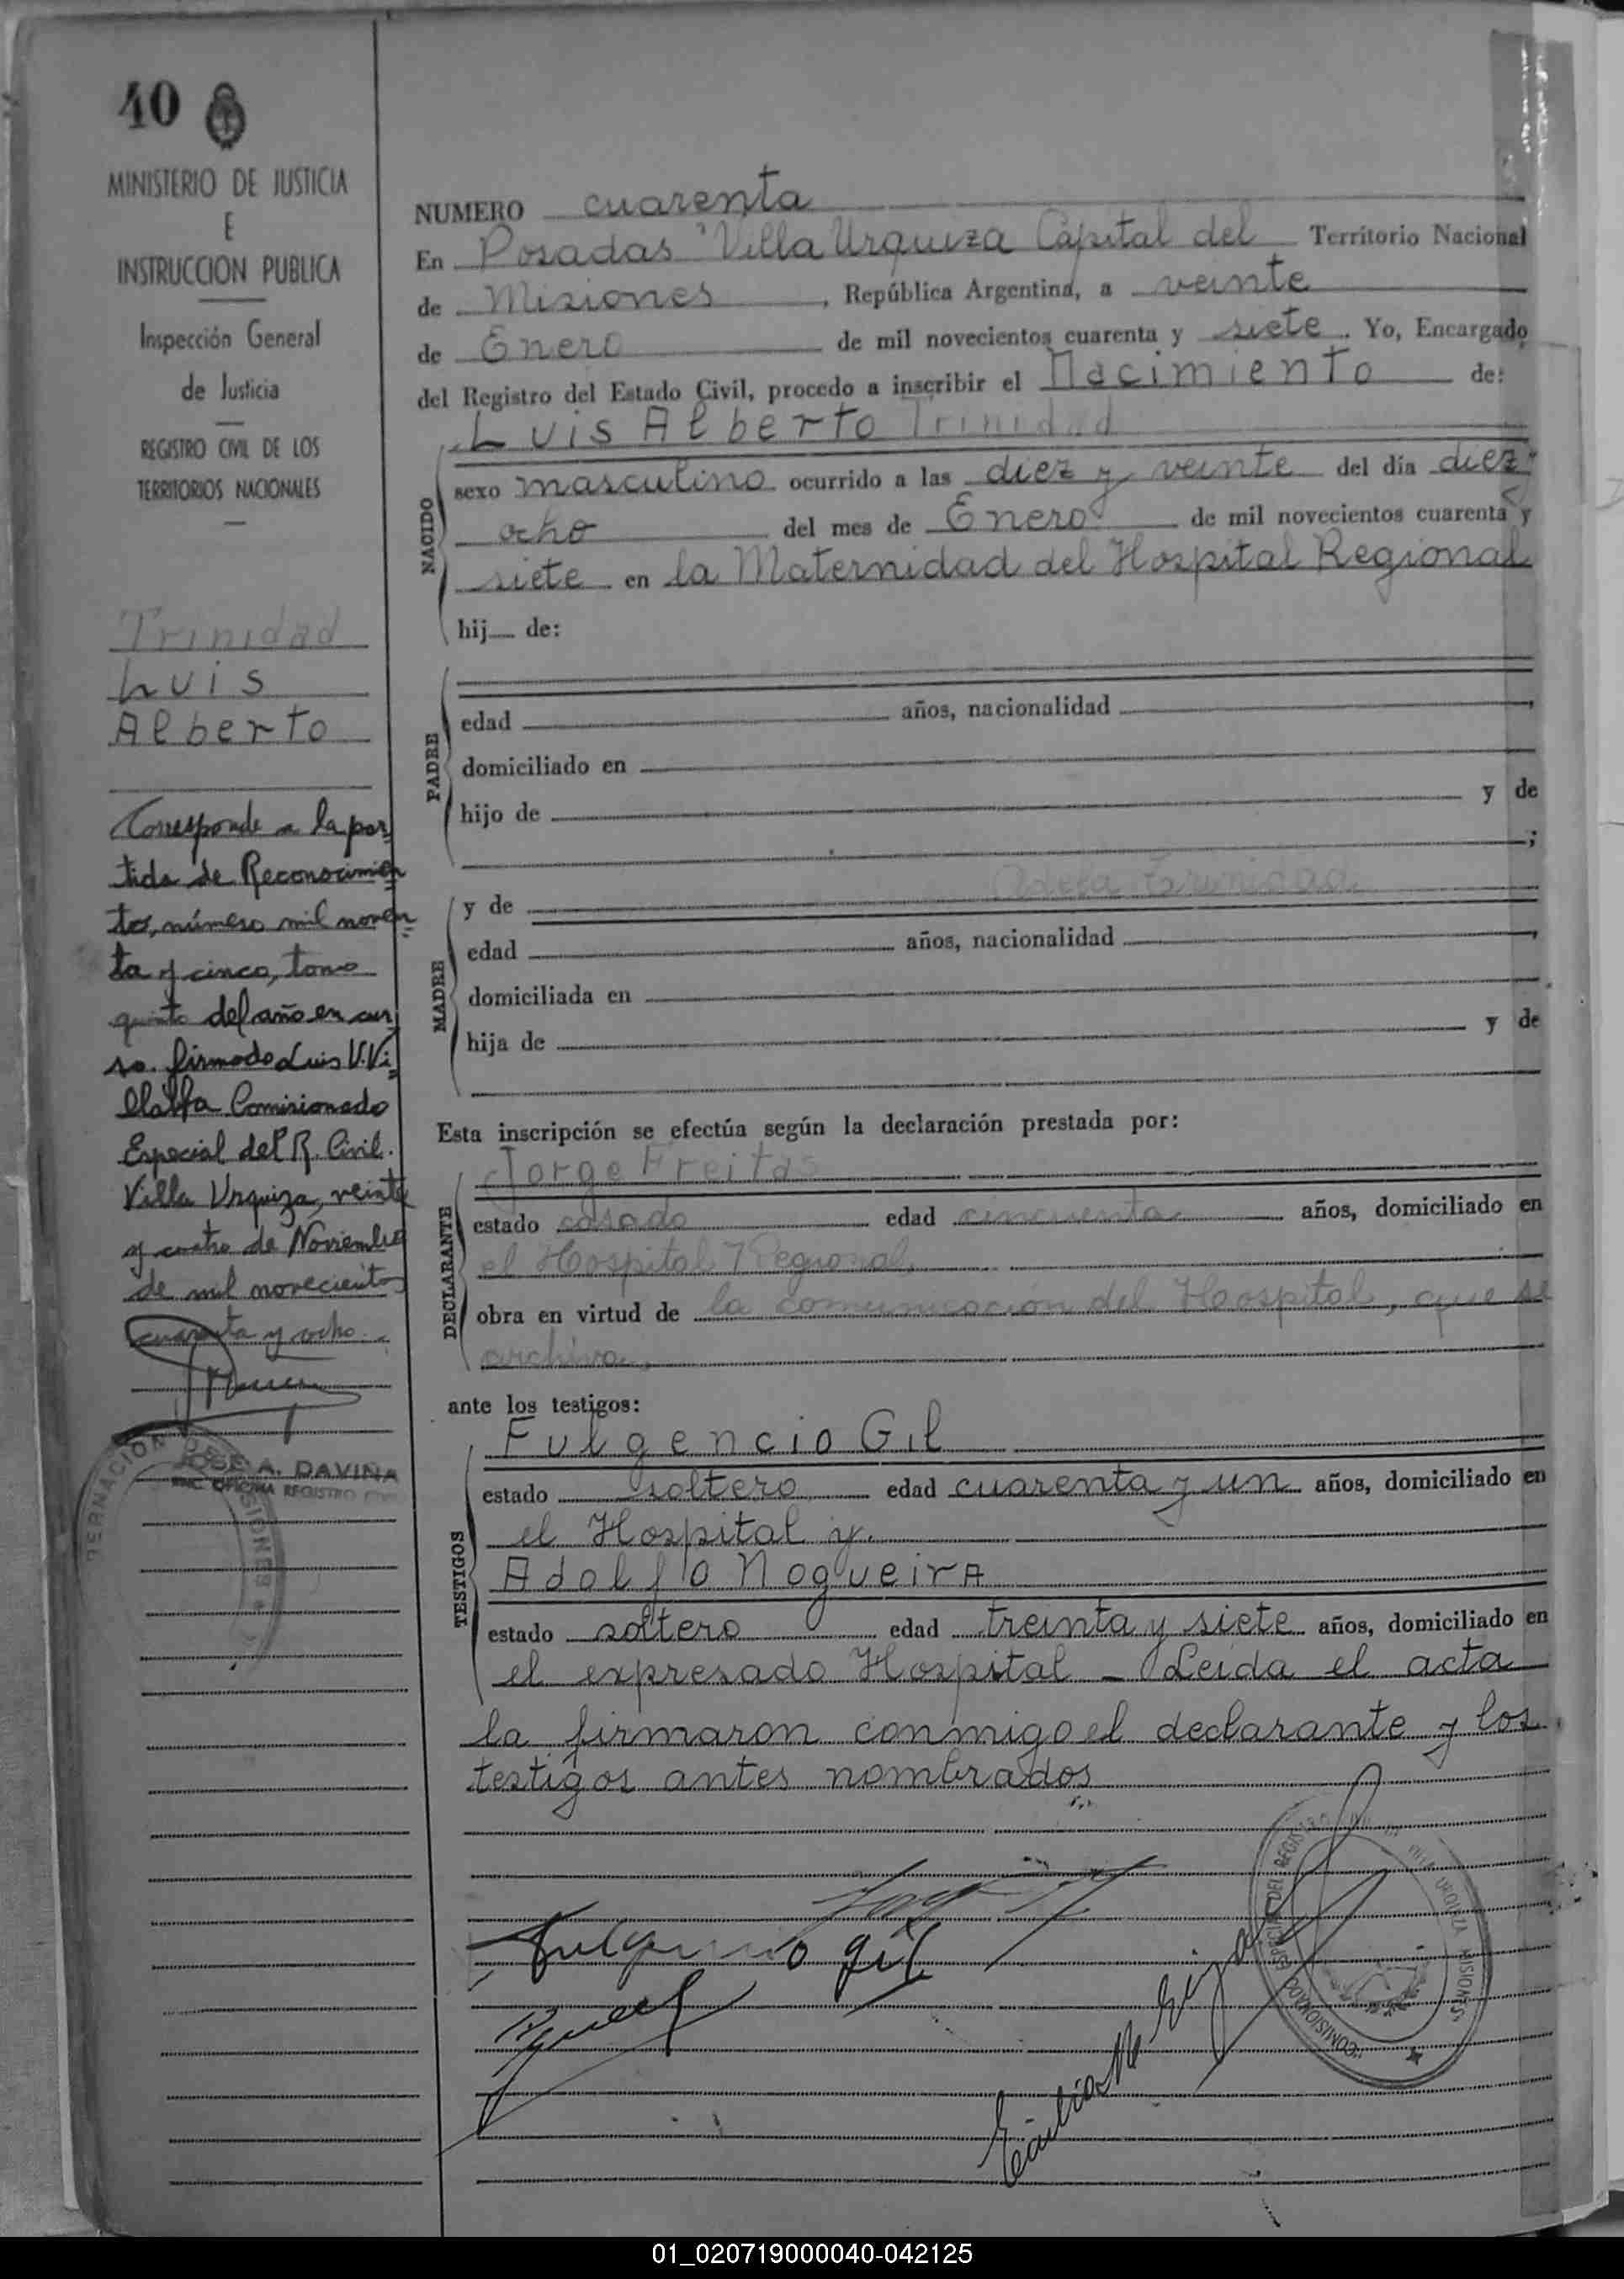 40
MINISTERIO DE JUSTICIA
E
INSTRUCCION PUBLICA
Inspección General
de Justicia
REGISTRO CIVIL DE LOS
TERRITORIOS NACIONALES
Trinidad
Luis
Alberto
Corresponde a la par
tida de Reconocimien
to, número mil noven
ta y cinco, tomo
quinto del año en cur
so. firmado Luis V. Vi
llalba Comisionado
Especial del R. Civil.
Villa Urquiza, veinte
y cuatro de Noviembre
de mil novecientos
cuarenta y ocho.
JOSE A. DAVIÑA
ENC. OFICINA REGISTRO CIVIL
NUMERO cuarenta
En Posadas "Villa Urquiza Capital del Territorio Nacional
de Misiones, República Argentina, a veinte
de Enero de mil novecientos cuarenta y siete. Yo, Encargado
del Registro del Estado Civil, procedo a inscribir el Nacimiento de:
Luis Alberto Trinidad
NACIDO
sexo masculino ocurrido a las diez y veinte del día diez y
ocho del mes de Enero de mil novecientos cuarenta y
siete en la Maternidad del Hospital Regional
hij de:
PADRE
edad años, nacionalidad ,
domiciliado en
hijo de y de
;
MADRE
y de Adela Trinidad
edad años, nacionalidad ,
domiciliada en
hija de y de
Esta inscripción se efectúa según la declaración prestada por:
Jorge Freitas
DECLARANTE
estado casado edad cincuenta años, domiciliado en
el Hospital Regional,
obra en virtud de la comunicacion del Hospital, que se
archiva,
ante los testigos:
Fulgencio Gil
TESTIGOS
estado soltero edad cuarenta y un años, domiciliado en
el Hospital y.
Adolfo Nogueira
estado soltero edad treinta y siete años, domiciliado en
el expresado Hospital – Leida el acta
la firmaron conmigo el declarante y los
testigos antes nombrados
Fulgencio Gil
COMISIONADO ESPECIAL DEL REGISTRO VILLA URQUIZA MISIONES
01_020719000040-042125